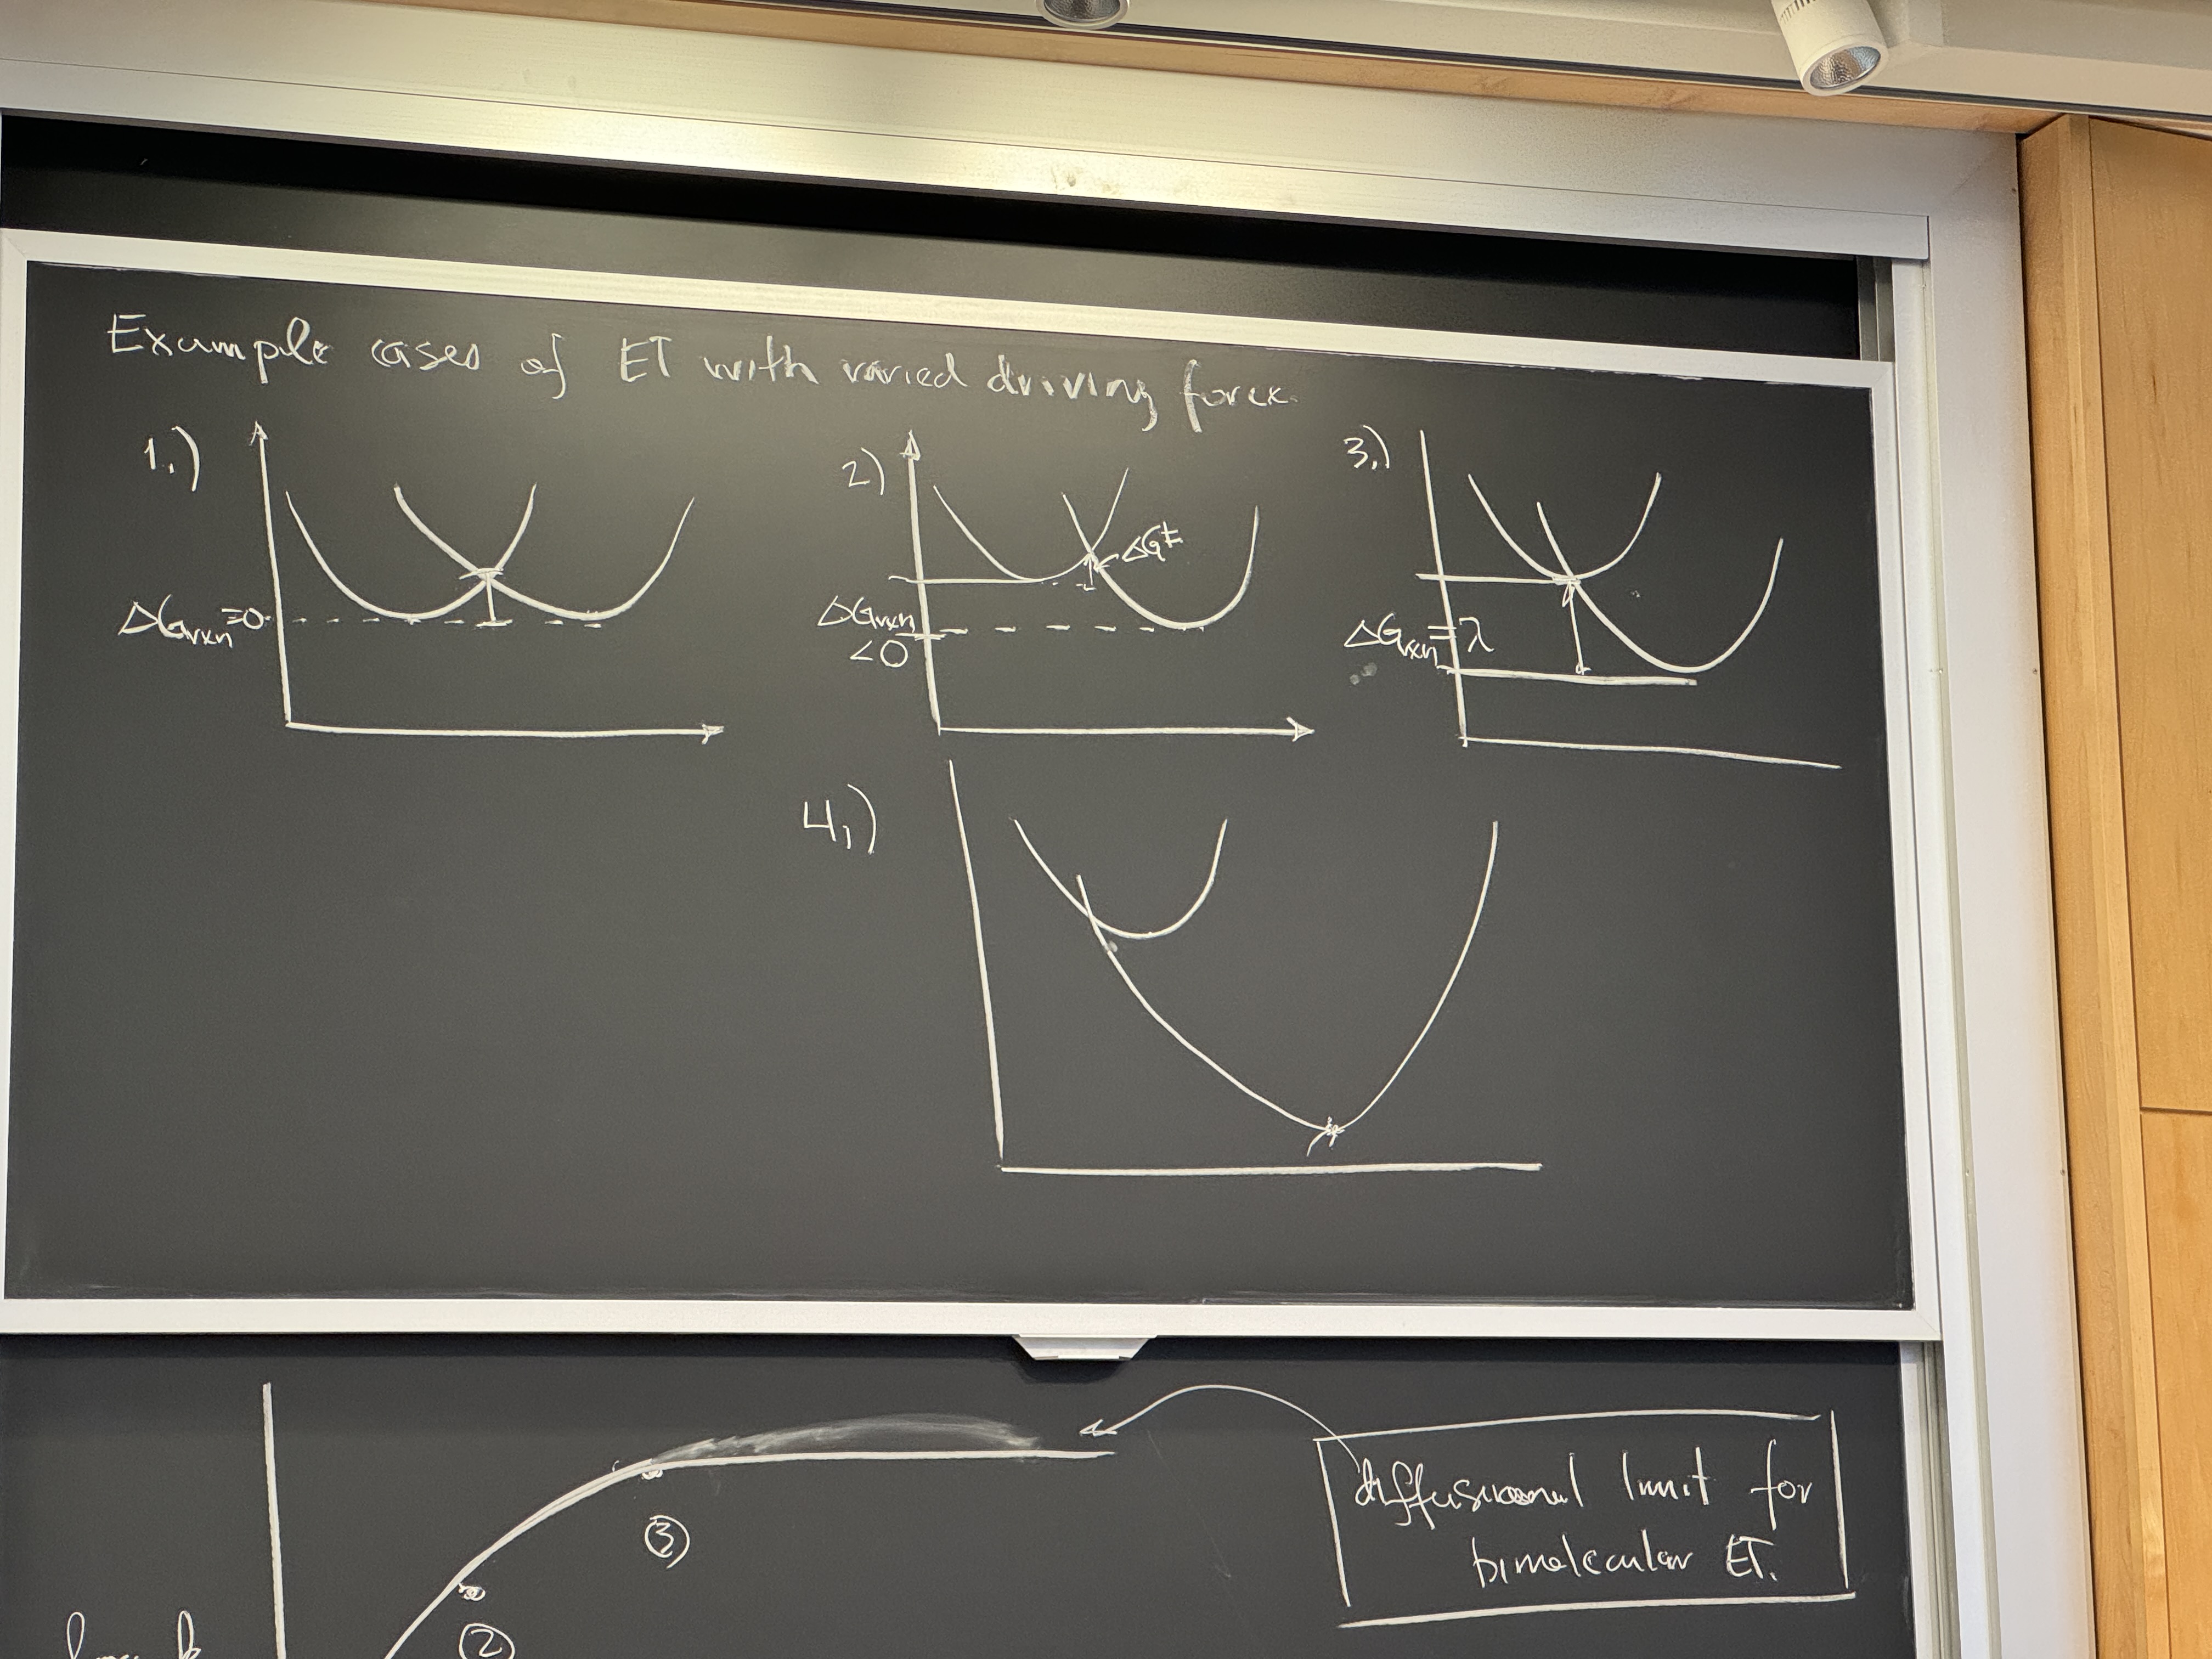 Example cases of ET with varied driving force.
1.)
ΔGrxn =0
2)
ΔG‡
ΔGrxn
<0
3.)
ΔGrxn = λ
4.)
diffusional limit for
bimolecular ET.
③
②